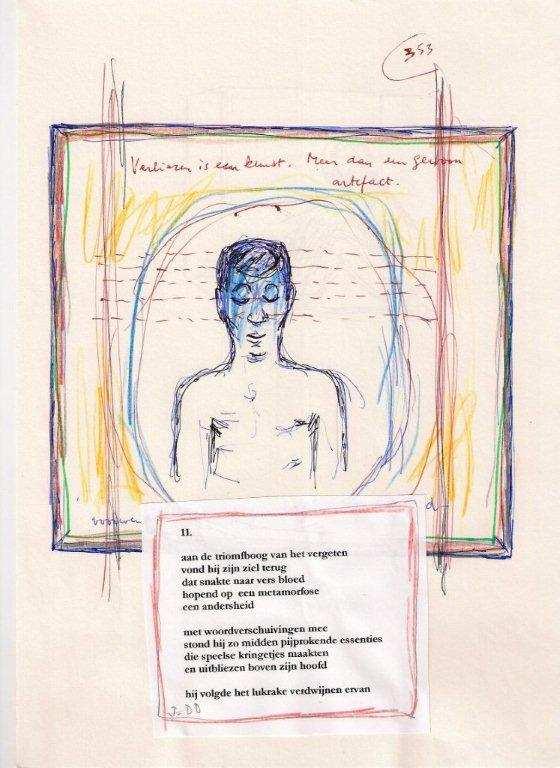 353
Verliezen is een kunst. Meer dan een gewoon
artefact.
11.
aan de triomfboog van het vergeten
vond hij zijn ziel terug
dat snakte naar vers bloed
hopend op een metamorfose
een andersheid
met woordverschuivingen mee
stond hij zo midden pijprokende essenties
die speelse kringetjes maakten
en uitbliezen boven zijn hoofd
hij volgde het lukrake verdwijnen ervan